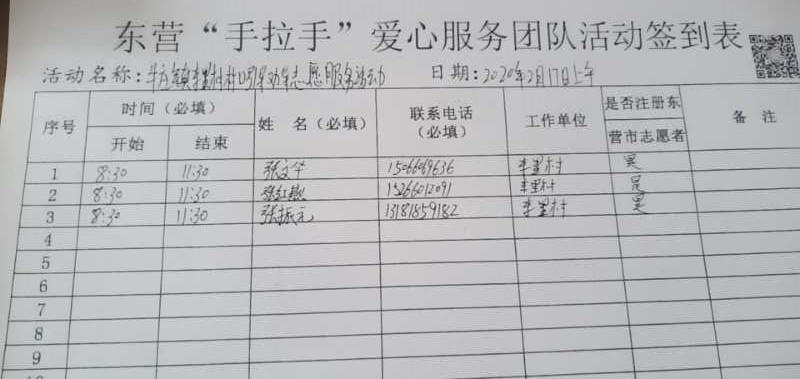 东营“手拉手”爱心服务团队活动签到表
活动名称：牛庄镇李星村村口执勤志愿服务活动 日期：2020年2月17日上午
序号 时间（必填） 姓 名（必填） 联系电话（必填） 工作单位 是否注册东营市志愿者 备 注
开始 结束
1 8:30 11:30 张文华 15066069636 李星村 是
2 8:30 11:30 张红 15266012091 李星村 是
3 8:30 11:30 张振元 13181859182 李星村 是
4
5
6
7
8
9
10